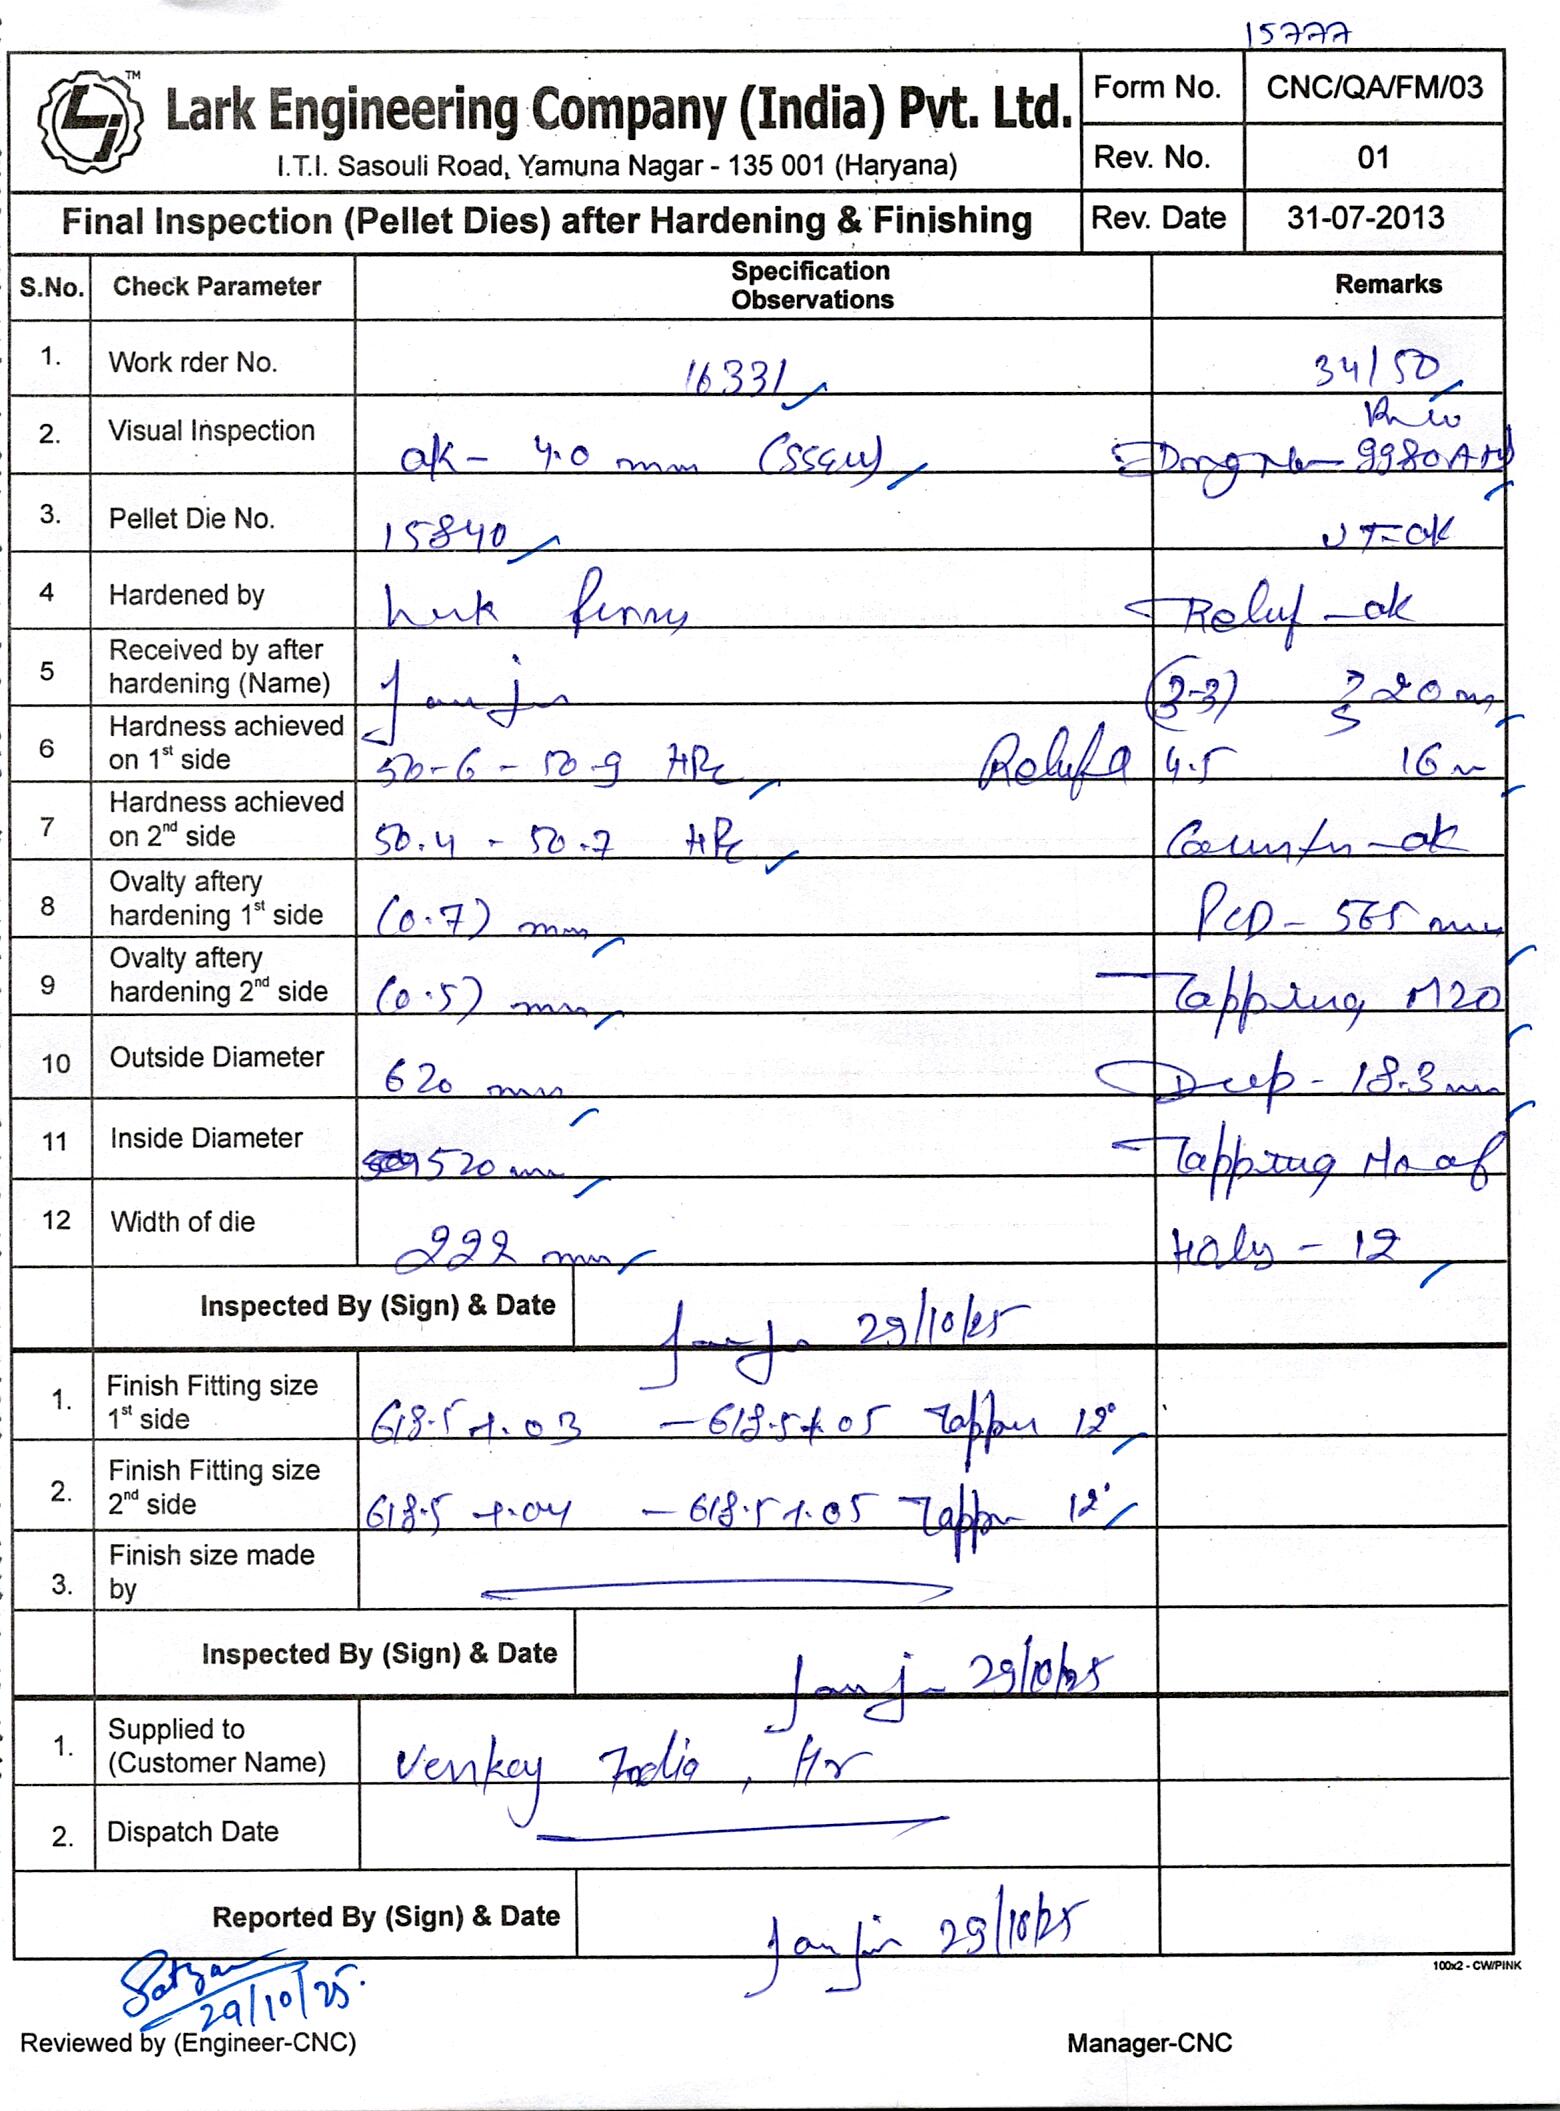 15777
TM
Lark Engineering Company (India) Pvt. Ltd.
I.T.I. Sasouli Road, Yamuna Nagar - 135 001 (Haryana)
Form No. CNC/QA/FM/03
Rev. No. 01
Final Inspection (Pellet Dies) after Hardening & Finishing
Rev. Date 31-07-2013
S.No. Check Parameter Specification Observations Remarks
1. Work rder No. 16331 34/50
2. Visual Inspection ok - 4.0 mm 9980
3. Pellet Die No. 15840 UT-ok
4 Hardened by Relief - ok
5 Received by after hardening (Name) (3-3) 20 m
6 Hardness achieved on 1st side 50-6 - 50.9 HRc Relief 4.5 16
7 Hardness achieved on 2nd side 50.4 - 50.7 HRc Counter - ok
8 Ovalty aftery hardening 1st side (0.7) mm PCD - 565 mm
9 Ovalty aftery hardening 2nd side (0.5) mm Tapping M20
10 Outside Diameter 620 mm Deep - 18.3 mm
11 Inside Diameter 520 mm Tapping No of
12 Width of die 222 mm Holes - 12
Inspected By (Sign) & Date 29/10/25
1. Finish Fitting size 1st side 618.5 +.03 - 618.5 +.05 Tapper 12°
2. Finish Fitting size 2nd side 618.5 +.04 - 618.5 +.05 Tapper 12°
3. Finish size made by
Inspected By (Sign) & Date 29/10/25
1. Supplied to (Customer Name) Venkey India, Hr
2. Dispatch Date
Reported By (Sign) & Date 29/10/25
100x2 - CW/PINK
29/10/25.
Reviewed by (Engineer-CNC) Manager-CNC